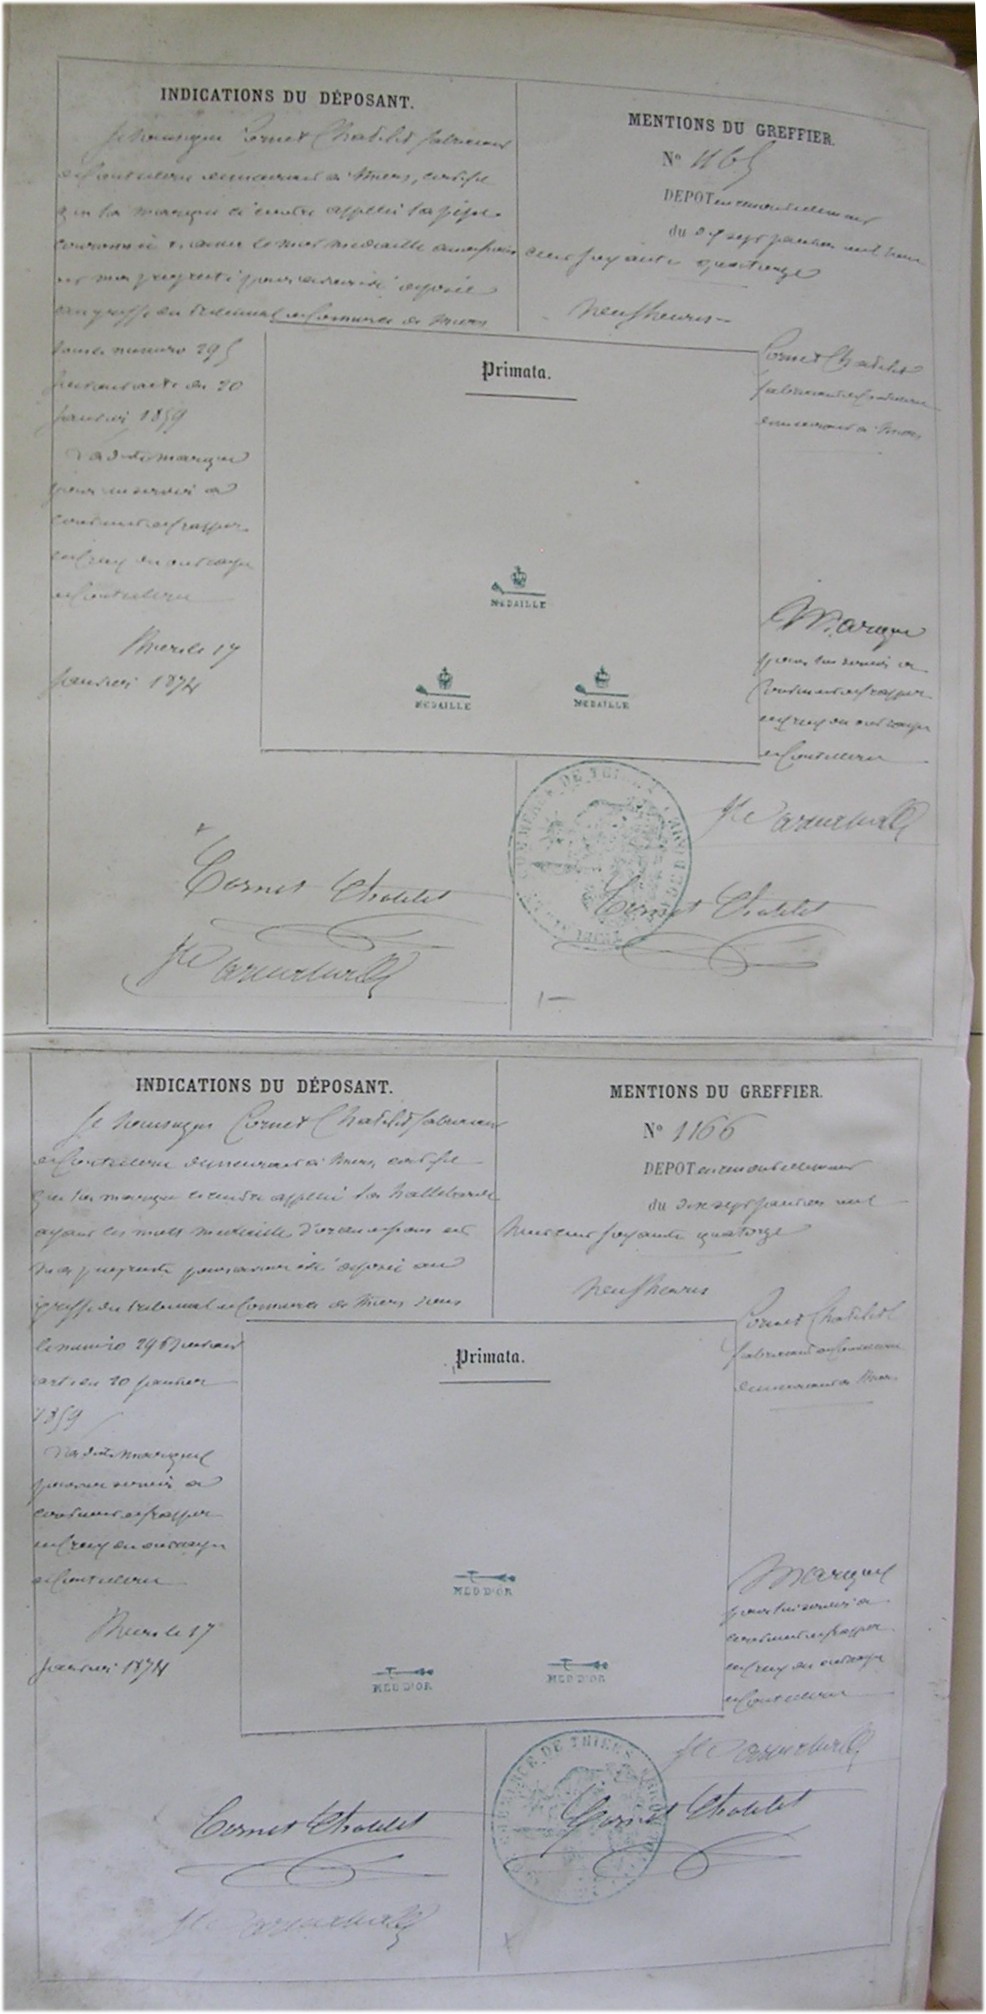 INDICATIONS DU DÉPOSANT.
Je soussigné Cornet Chatelet fabricant
de Coutellerie demeurant à Thiers, certifie
que la marque ci contre appelée la pipe
couronnée et avec le mot medaille
est ma propriété pour avoir été déposée
au greffe du tribunal de Commerce de Thiers
sous le numéro 295
suivant acte du 20
Janvier 1859
La dite marque
pour me servir à
continuer de frapper
en creux du ouvrages
de Coutellerie
Thiers le 17
Janvier 1874
Cornet Chatelet
MENTIONS DU GREFFIER.
N° 1165
DEPOT en renouvellement
du dix sept Janvier mil huit
cent soixante quatorze
Neuf heures
Cornet Chatelet
fabricant de Coutellerie
demeurant à Thiers
Primata.
MEDAILLE
MEDAILLE
MEDAILLE
Marque
pour lui servir à
Continuer de frapper
en creux du ouvrages
de Coutellerie
COMMERCE DE THIERS
Cornet Chatelet
INDICATIONS DU DÉPOSANT.
Je soussigné Cornet Chatelet fabricant
de Coutellerie demeurant à Thiers certifie
que la marque ci contre appelée la hallebarde
ayant les mots medaille d'or est
ma propriété pour avoir été déposée au
greffe du tribunal de Commerce de Thiers sous
le numéro 296 suivant
acte du 20 Janvier
1859
La dite marque
pour me servir à
continuer de frapper
en creux du ouvrages
de Coutellerie
Thiers le 17
Janvier 1874
Cornet Chatelet
MENTIONS DU GREFFIER.
N° 1166
DEPOT en renouvellement
du dix sept Janvier mil
huit cent soixante quatorze
Neuf heures
Cornet Chatelet
fabricant de Coutellerie
demeurant à Thiers
Primata.
MED D'OR
MED D'OR
MED D'OR
Marque
pour lui servir à
continuer de frapper
en creux du ouvrages
de Coutellerie
COMMERCE DE THIERS
Cornet Chatelet